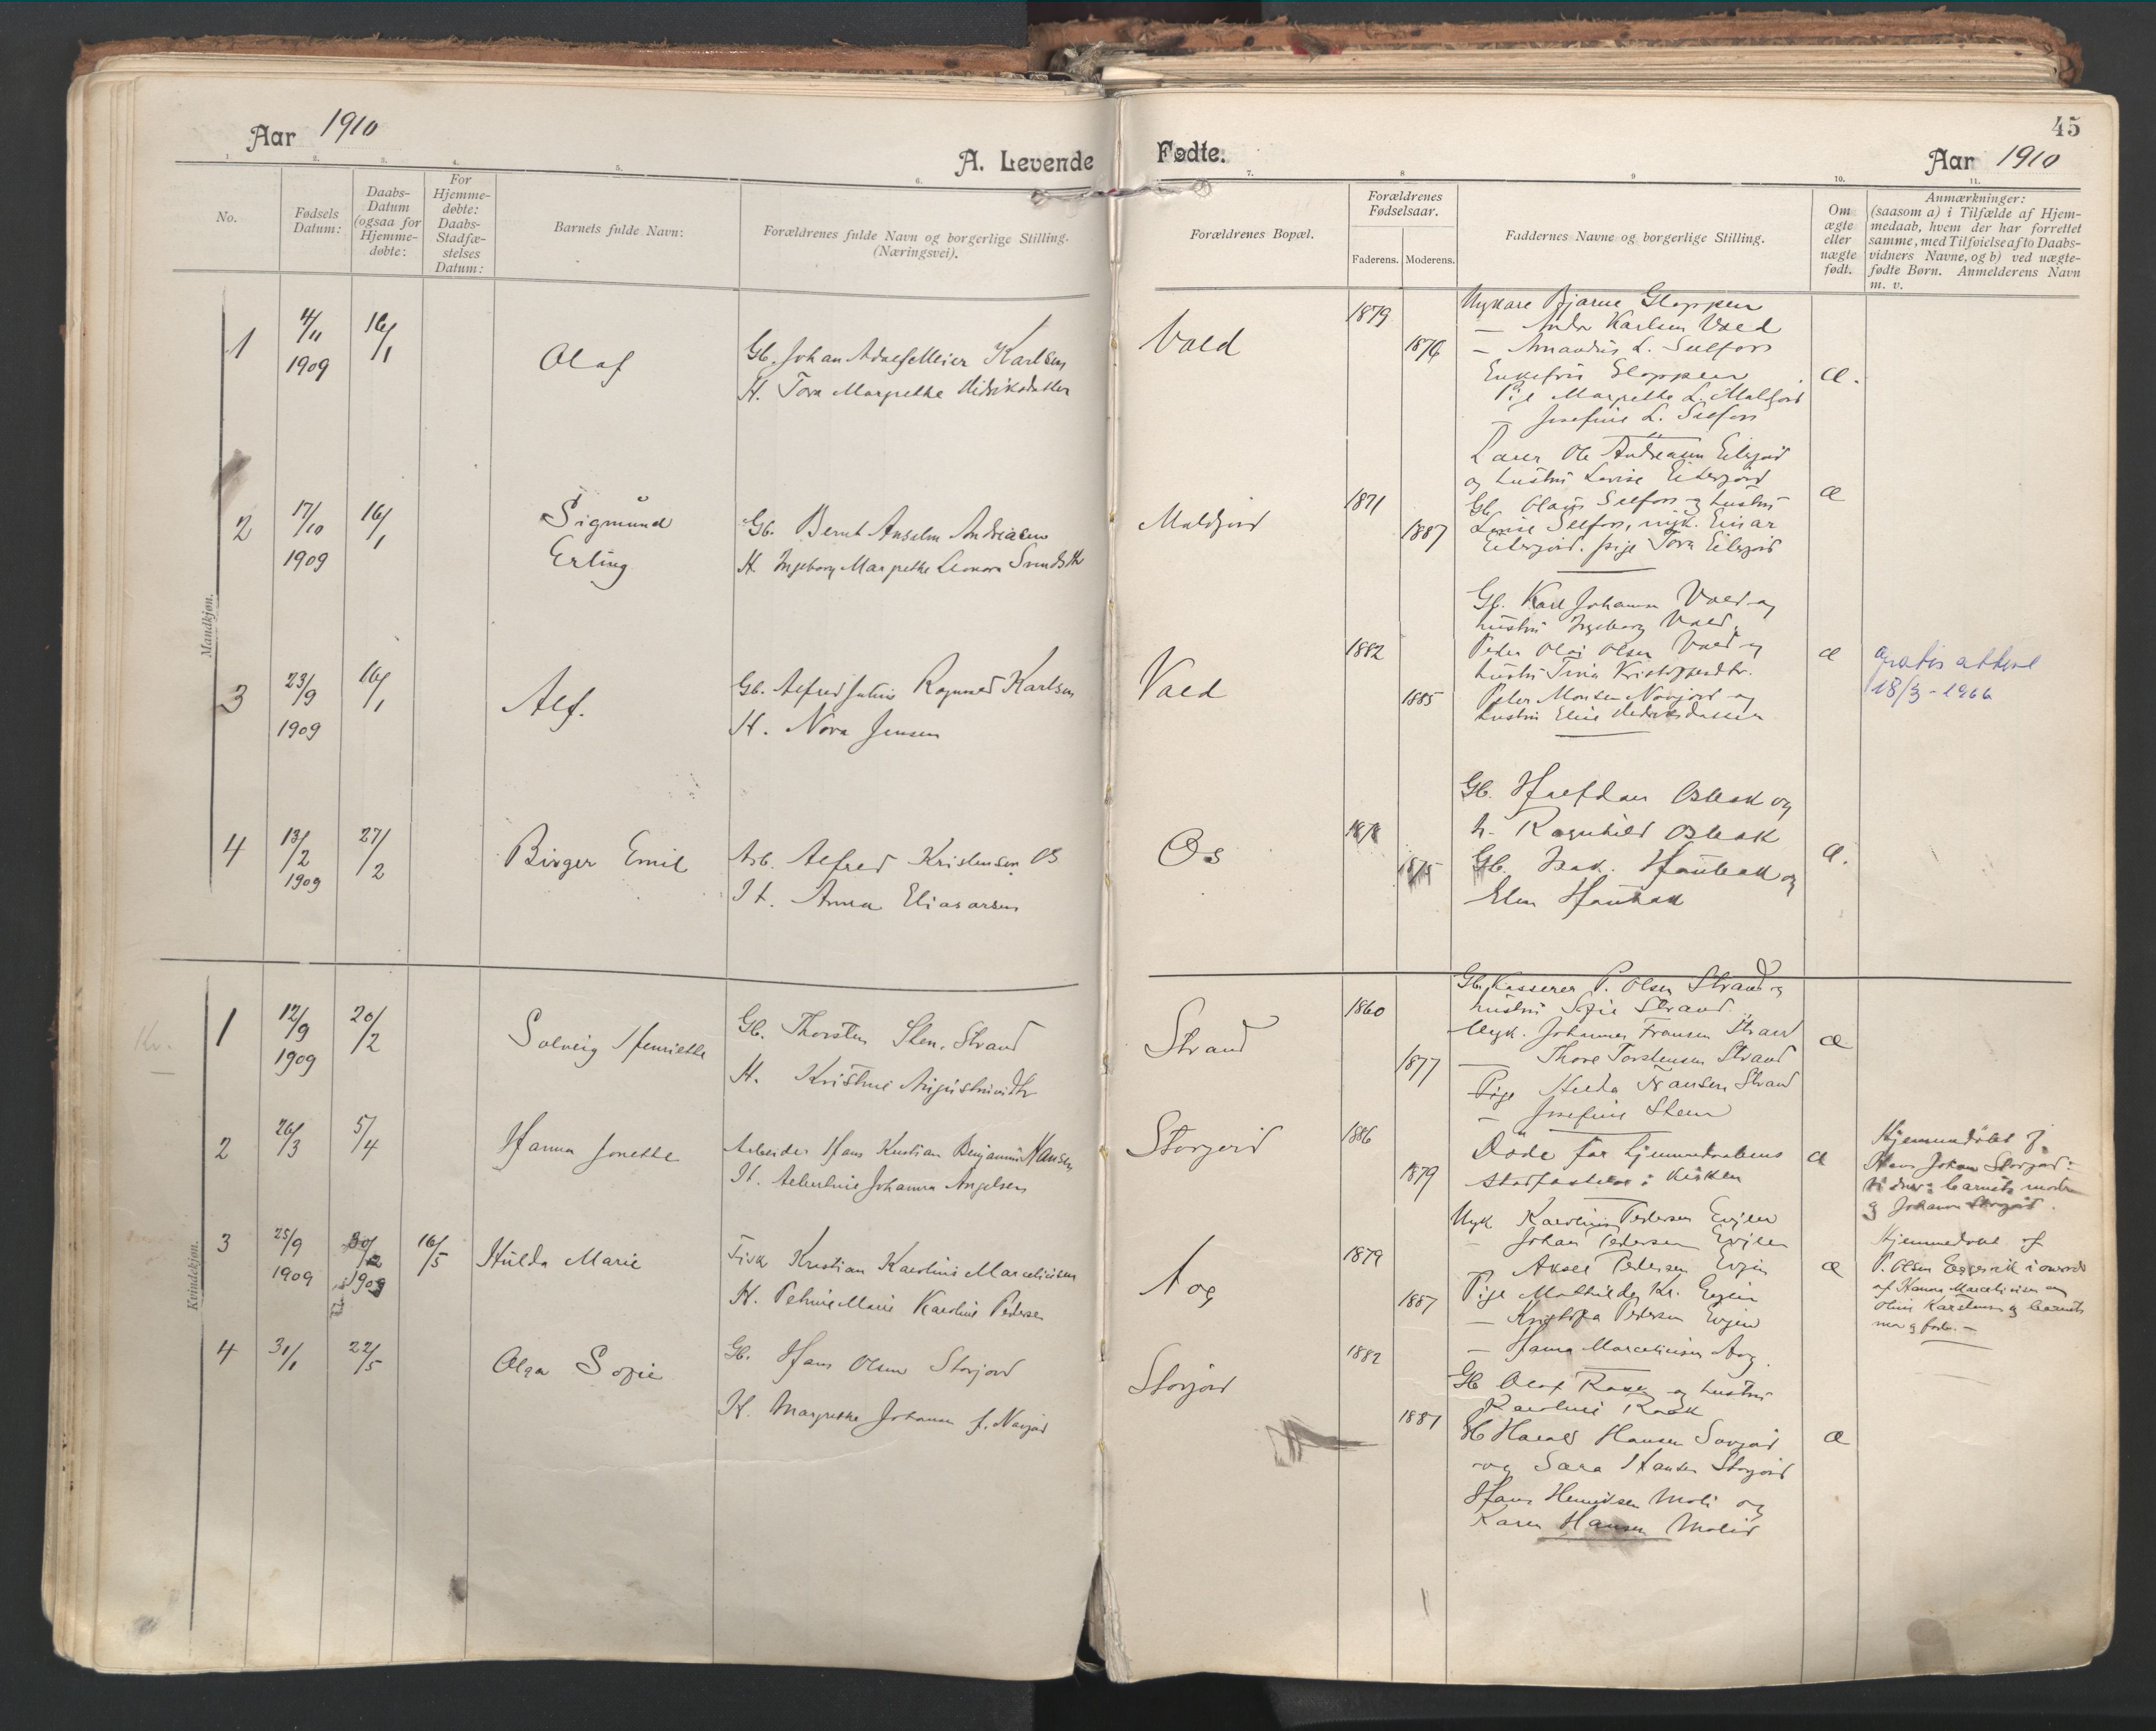 Aar 1910
A. Levende
1. 2. 3. 4. 5. 6.
No.
Fødsels Datum:
Daabs-Datum (ogsaa for Hjemme-døbte:
For Hjemme-døbte: Daabs-Stadfæ-stelses Datum:
Barnets fulde Navn:
Forældrenes fulde Navn og borgerlige Stilling. (Næringsvei).
Mandkjøn.
1 4/11 1909 16/1 Olaf
Gb. Johan Adolf Meier Karlsen
H. Tora Margrethe
2 17/10 1909 16/1 Sigmund Erling
Gb. Bernt Anselm Andreasen
H. Ingeborg Margrethe Leonora
3 23/9 1909 16/1 Alf.
Gb. Alfred Julius Ragnvald Karlsen
H. Nora Jensen
4 13/2 1909 27/2 Birger Emil
Arb. Alfred Kristensen Os
H. Anna Eliasarsen
Kv.
Kvindekjøn.
1 12/9 1909 20/2 Solveig Henriette
Gb. Thorsten Sten. Strand
H. Kristine
2 26/3 5/4 Hanna Jonette
Arbeider Hans Kristian Benjamin Hansen
H. Johanna Angelsen
3 25/9 1909 30/12 1909 16/5 Hulda Marie
Fisk Kristian Karolius Marceliusen
H. Petrine Marie Karoline Pedersen
4 31/1 22/5 Olga Sofie
Gb. Hans Olsen Storjord
H. Margrethe Johanna f.
45
Fødte.
Aar 1910
7. 8 9 10. 11.
Forældrenes Bopæl.
Forældrenes Fødselsaar.
Faderens. Moderens.
Faddernes Navne og borgerlige Stilling.
Om ægte eller uægte født.
Anmærkninger:
(saasom a) i Tilfælde af Hjem-
medaab, hvem der har forrettet
samme, med Tilføielse af to Daabs-
vidners Navne, og b) ved uægte-
fødte Børn. Anmelderens Navn
m. v.
Vold 1879 1876
Ungkare Bjarne Gloppen
Karlsen Vold
— Amandus L. Selfors
Gloppen
Pige Margrethe L.
— Josefine L. Selfors
Æ.
Ole Andreasen
og hustru Lovise
1871 1887
Gb. Olaus Selfors og hustru
Selfors, ungk. Einar
pige Tora
Æ
Gb. Karl Johansen Vold og
hustru Ingeborg Vold
Vold 1882 1885
Peder Olai Olsen Vold og
hustru
Peter Monsen og
hustru Elise
Æ
gratis attest
18/3 - 1966
Os 1878 1875
Gb. Halfdan Osbak og
h. Ragnhild Osbak
Gb. Isak. Haubak og
Elen Haubak
Æ.
Strand 1860 1877
Gb. Kasserer P. Olsen Strand og
hustru Sofie Strand.
Ungk. Johannes Fransen Strand
— Thore Torstensen Strand
Pige Hilda Hansen Strand
— Josefine Sten
Æ
Storjord 1886 1879
Døde før hjemmedaabens
stadfæstelse i kirken
Æ
Hjemmedøbt af
Hans Johan Storjord:
Vidner: barnets moder
og Johanna Storjord.
Aog 1879 1887
Ungk. Karolius Pedersen Evjen
— Johan Pedersen Evjen
Aksel Pedersen Evjen
Pige Mathilde Kr. Evjen
— Kristofa Pedersen Evjen
— Hanna Marceliusen Aog.
Æ
Hjemmedøbt af
P. Olsen
af Hanna Marceliusen og
Oline Karstensen og barnets
mor og far. —
Storjord 1882 1887
Gb Olaf Rask og hustru
Karoline Rask
Gb Harald Hansen Storjord
og Sara Hansen Storjord
Hans Henriksen Moli og
Karen Hansen Moli
Æ